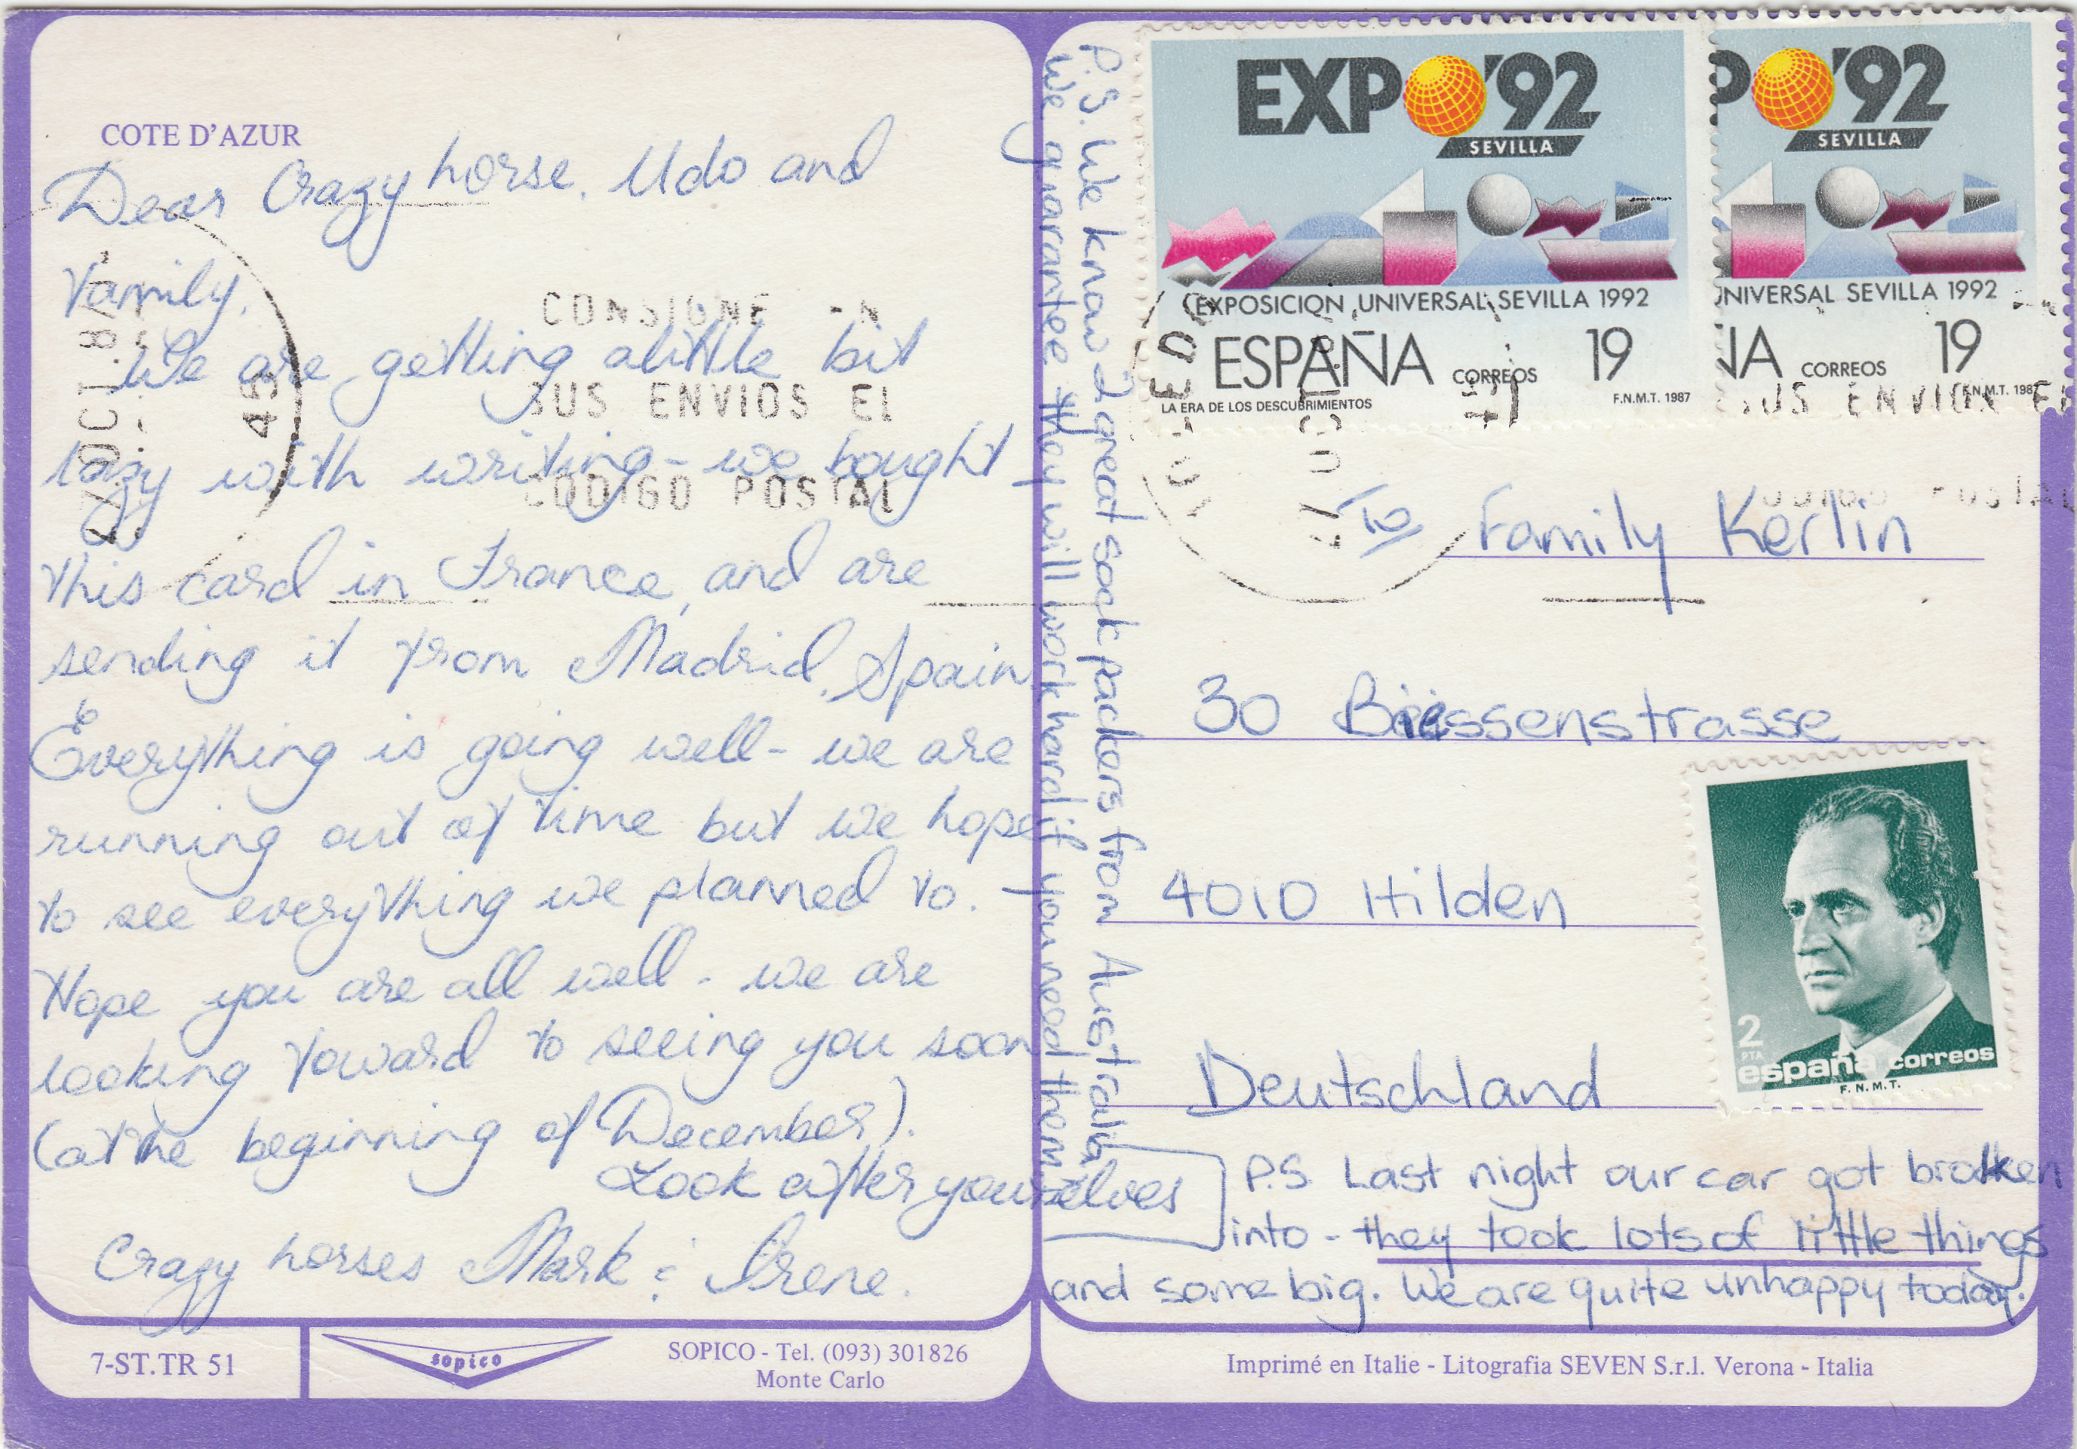 COTE D'AZUR
Dear Crazy horse, Udo and
Family,
We are getting alittle bit
lazy with writing - we bought
this card in France, and are
sending it from Madrid, Spain
Everything is going well - we are
running out of time but we hope
to see everything we planned to.
Hope you are all well - we are
looking foward to seeing you soon
(at the beginning of December).
Look after yourselves
Crazy horses Mark & Irene.
7-ST.TR 51
sopico
SOPICO - Tel. (093) 301826
Monte Carlo
P.S. We know 2 great sack packers from Australia
We guarantee they will work hard if you need them
EXPO '92
SEVILLA
EXPOSICION UNIVERSAL SEVILLA 1992
ESPAÑA CORREOS 19
LA ERA DE LOS DESCUBRIMIENTOS
F.N.M.T. 1987
PO '92
SEVILLA
NIVERSAL SEVILLA 1992
ÑA CORREOS 19
F.N.M.T. 1987
CONSIGNE EN
SUS ENVIOS EL
CODIGO POSTAL
SUS ENVIOS EL
To/ Family Kerlin
30 Biessenstrasse
4010 Hilden
Deutschland
2
PTA
españa correos
F.N.M.T.
P.S. Last night our car got broken
into - they took lots of little things
and some big. We are quite unhappy today.
Imprimé en Italie - Litografia SEVEN S.r.l. Verona - Italia